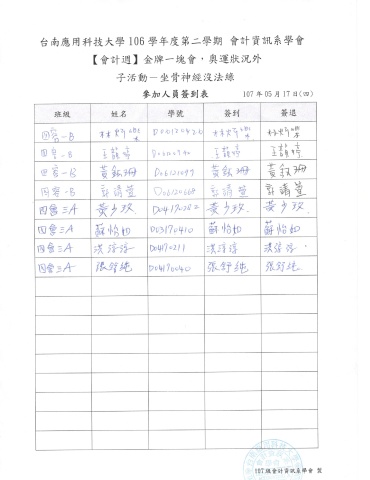 台南應用科技大學 106 學年度第二學期 會計資訊系學會
【會計週】金牌一塊會，奧運狀況外
子活動－坐骨神經沒法緣
參加人員簽到表 107 年 05 月 17 日(四)
班級 姓名 學號 簽到 簽退
四會一B
四會一B 王韻婷 王韻婷 王韻婷
四會一B 黃鈺珊 D06121097 黃鈺珊 黃鈺珊
四會一B 郭靖萱 郭靖萱 郭靖萱
四會三A 黃少玫 D04170252 黃少玫 黃少玫
四會三A 蘇怡如 D03170410 蘇怡如 蘇怡如
四會三A 洪淳淳 D04170211 洪淳淳 洪淳淳
四會三A 張舒純 D04170040 張舒純 張舒純
107級會計資訊系學會 製